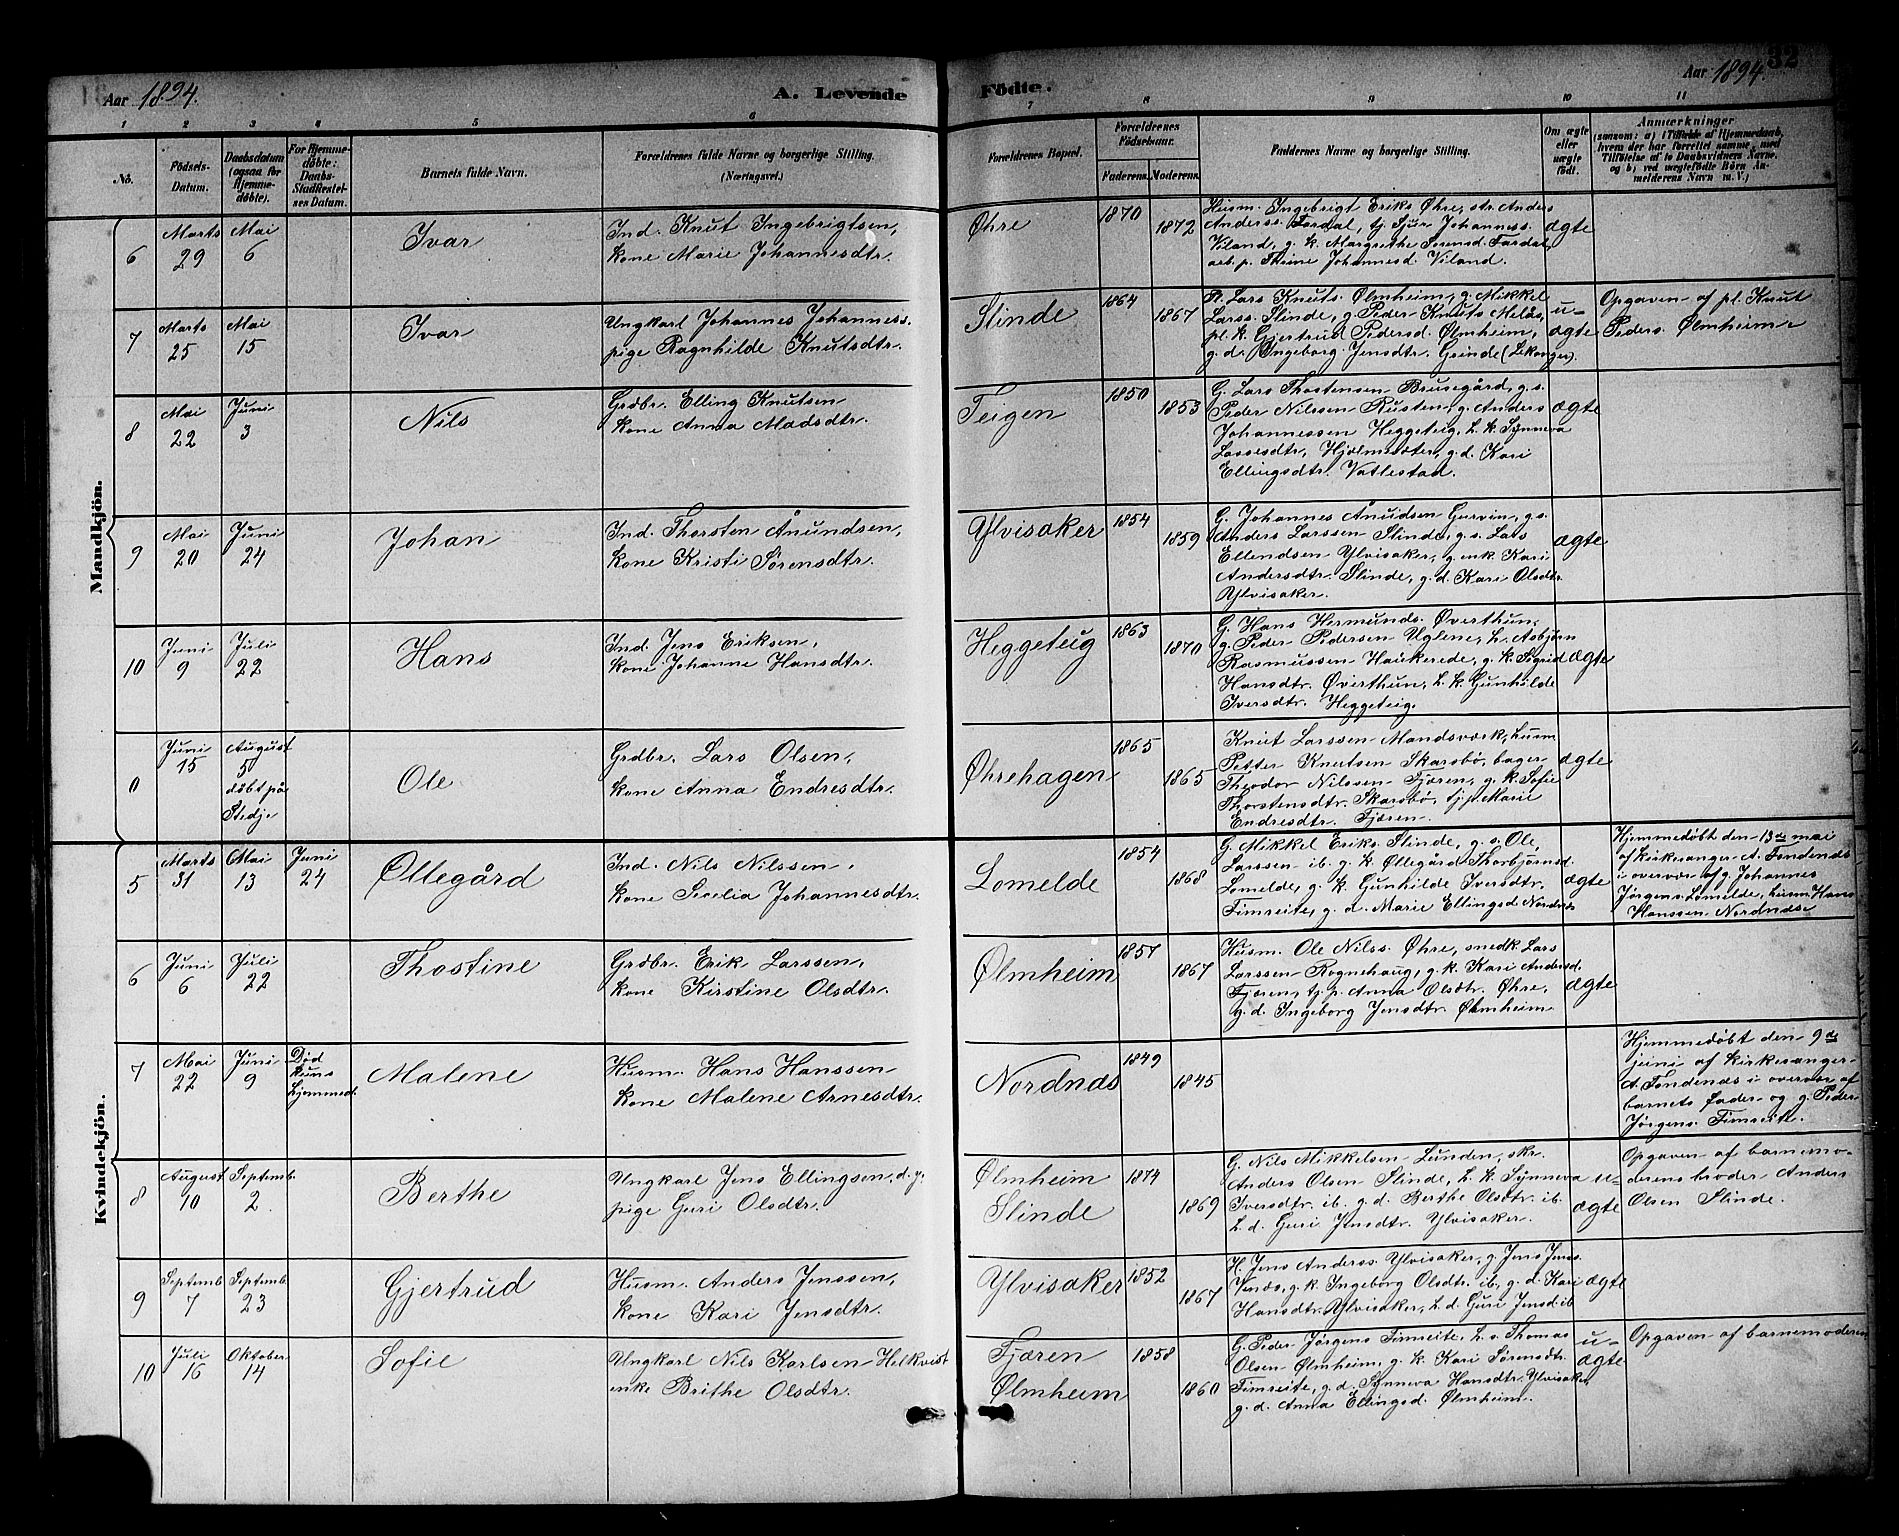 Aar 1894.
A. Levende
Födte.
Aar 1894.
32
1 2 3 4 5 6 7 8 9 10 11
No.
Födsels-Datum.
Daabsdatum (ogsaa for Hjemme-döbte).
For Hjemme-döbte: Daabs-Stadfæstel-ses Datum.
Barnets fulde Navn.
Forældrenes fulde Navne og borgerlige Stilling. (Næringsvei.)
Forældrenes Bopæl.
Forældrenes Födselsaar.
Faderens. Moderens.
Faddernes Navne og borgerlige Stilling.
Om ægte eller uægte födt.
Anmærkninger
(saasom: a) i Tilfælde af Hjemmedaab, hvem der har forrettet samme, med Tilföielse af to Daabsvidners Navne, og b) ved uægtefödte Börn Anmelderens Navn m. V.)
Mandkjön.
6 Marts 29 Mai 6 Ivar
Ind. Knut Ingebrigtsen,
kone Marie Johannesdtr.
Øhre 1870 1872
Husm. Ingebrigt Eriks. Øhre, str. Anders
Anderss. Fardal, tj. Sjur Johanness.
Viland, g. k. Margrethe Sørensd. Fardal
arb. p. Johannesd. Viland.
ægte
7 Marts 25 Mai 15 Ivar
Ungkarl Johannes Johanness.
pige Ragnhilde Knutsdtr.
Slinde 1864 1867
Pl. Lars Knuts. Ølmheim, g. Mikkel
Larss. Slinde, g. Peder Knuts. Melås,
pl. k. Gjertrud Pedersd. Ølmheim,
g. d. Ingeborg Jensdtr. Grinde (Lekanger).
u-ægte
Opgaven af pl. Knut
Peders. Ølmheim
8 Mai 22 Juni 3 Nils
Grdbr. Elling Knutsen
kone Anna Madsdtr.
Teigen 1850 1853
G. Lars Thostensen Brusegård, g. s.
Peder Nilssen Rusten, g. Anders
Johannessen Heggeteig, L. k. Synneva
Lassesdtr. Hjelmeseter, g. d. Kari
Ellingsdtr. Vatlestad.
ægte
9 Mai 20 Juni 24 Johan
Ind. Thorsten Ånundsen,
kone Kristi Sørensdtr.
Ylvisaker 1854 1859
G. Johannes Anudsen Gurvin, g. s.
Anders Larssen Slinde, g. s. Lars
Ellendsen Ylvisaker, g. enk. Kari
Andersdtr. Slinde, g. d. Kari Olsdtr.
Ylvisaker.
ægte
10 Juni 9 Juli 22 Hans
Ind. Jens Eriksen,
kone Johanne Hansdtr.
Heggeteig 1863 1870
G. Hans Hermunds. Øverthun,
g. Peder Pedersen Uglene, L. Asbjørn
Rasmussen Haukerede, g. k. Sigrid
Hansdtr. Øverthun, L. k. Gunhilde
Iversdtr. Heggeteig.
ægte
0 Juni 15 August 5 døbt på Stedje Ole
Grdbr. Lars Olsen,
kone Anna Endresdtr.
Øhrehagen 1865 1865
Knut Larssen Mandsværk, husm.
Petter Knutsen Skarsbø, bager
Theodor Nilssen Fjæren, g. k. Sofie
Thorstensdtr. Skarsbø, tj. p. Marie
Endresdtr. Fjæren.
ægte
Kvindekjön.
5 Marts 31 Mai 13 Juni 24 Øllegård
Ind. Nils Nilssen,
kone Secelia Johannesdtr.
Lomelde 1854 1868
G. Mikkel Eriks. Slinde, g. s. Ole
Larssen ib. g. k. Øllegård Thorbjørnsd.
Lomelde, g. k. Gunhilde Iversdtr.
Fimreite, g. d. Marie Ellingsd. Nordnæs
ægte
Hjemmedøbt den 13de mai
af kirkesanger A. Tendenæs
i overvær af g. Johannes
Jørgens. Lomelde, husm. Hans
Hanssen Nordnæs.
6 Juni 6 Juli 22 Thostine
Grdbr. Erik Larssen,
kone Kirstine Olsdtr.
Ølmheim 1857 1867
Husm. Ole Nilss. Øhre, smedk. Lars
Larssen Rognehaug, g. k. Kari Andersd.
Fjæren, tj. p. Anna Olsdtr. Øhre,
g. d. Ingeborg Jensdtr. Ølmheim
ægte
7 Mai 22 Juni 9 Død kuns hjemmed. Malene
Husm. Hans Hanssen
kone Malene Arnesdtr.
Nordnæs 1849 1845
Hjemmedøbt den 9de
juni af kirkesanger
A. Tendenæs i overvær af
barnets fader og g. Peder
Jørgens. Fimreite.
8 August 10 Septemb. 2 Berthe
Ungkarl Jens Ellingsen, d. y.
pige Guri Olsdtr.
Ølmheim
Slinde
1874 1869
G. Nils Mikkelsen Lunden, skr.
Anders Olsen Slinde, L. k. Synneva
Iversdtr. ib. g. d. Berthe Olsdtr. ib.
L. d. Guri Jensdtr. Ylvisaker.
u-ægte
Opgaven af barnemo-
derens broder Anders
Olsen Slinde.
9 Septemb. 7 Septemb. 23 Gjertrud
Husm. Anders Jenssen,
kone Kari Jensdtr.
Ylvisaker 1852 1867
H. Jens Anderss. Ylvisaker, g. Jens Jenss.
Venæs, g. k. Ingeborg Olsdtr. ib., g. d. Kari
Hansdtr. Ylvisaker, L. d. Guri Jensd. ib
ægte
10 Juli 16 Oktober 14 Sofie
Ungkarl Nils Karlsen Helkvist
enke Brithe Olsdtr.
Fjæren
Ølmheim
1858 1860
G. Peder Jørgens. Fimreite, L. s. Thomas
Olsen Ølmheim, g. k. Kari Sørensdtr.
Fimreite, g. d. Synneva Hansdtr. Ylvisaker,
g. d. Anna Ellingsd. Ølmheim.
u-ægte
Opgaven af barnemoderen